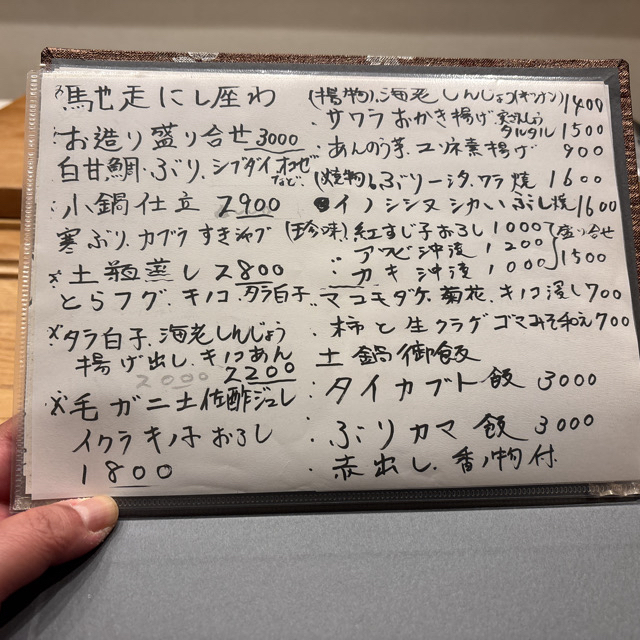 馳走にし座わ
・お造り盛り合せ 3000
白甘鯛、ぶり、シブダイ オコゼ
など
・小鍋仕立 2900
寒ぶり、カブラ すきシャブ
・土瓶蒸し 2800
とらフグ、キノコ、タラ白子
・タラ白子、海老しんじょう
揚げ出し、キノコあん
2000 2200
・毛ガニ土佐酢ジュレ
イクラ キノコ おろし
1800
(揚物)、海老しんじょう 1400
・サワラ おかき揚げ
タルタル 1500
・あんのう芋、ユリネ素揚げ 900
(焼物)、ぶりーシタ、ワラ焼 1600
イノシシ いぶし焼 1600
(珍味)、紅すじ子おろし 1000
・アワビ沖漬 1200
・カキ沖漬 1000
盛り合せ
1500
・マコモダケ、菊花、キノコ浸し 700
・柿と生クラゲ ゴマみそ和え 700
土鍋御飯
・タイカブト飯 3000
・ぶりカマ飯 3000
・赤出し、香ノ物付